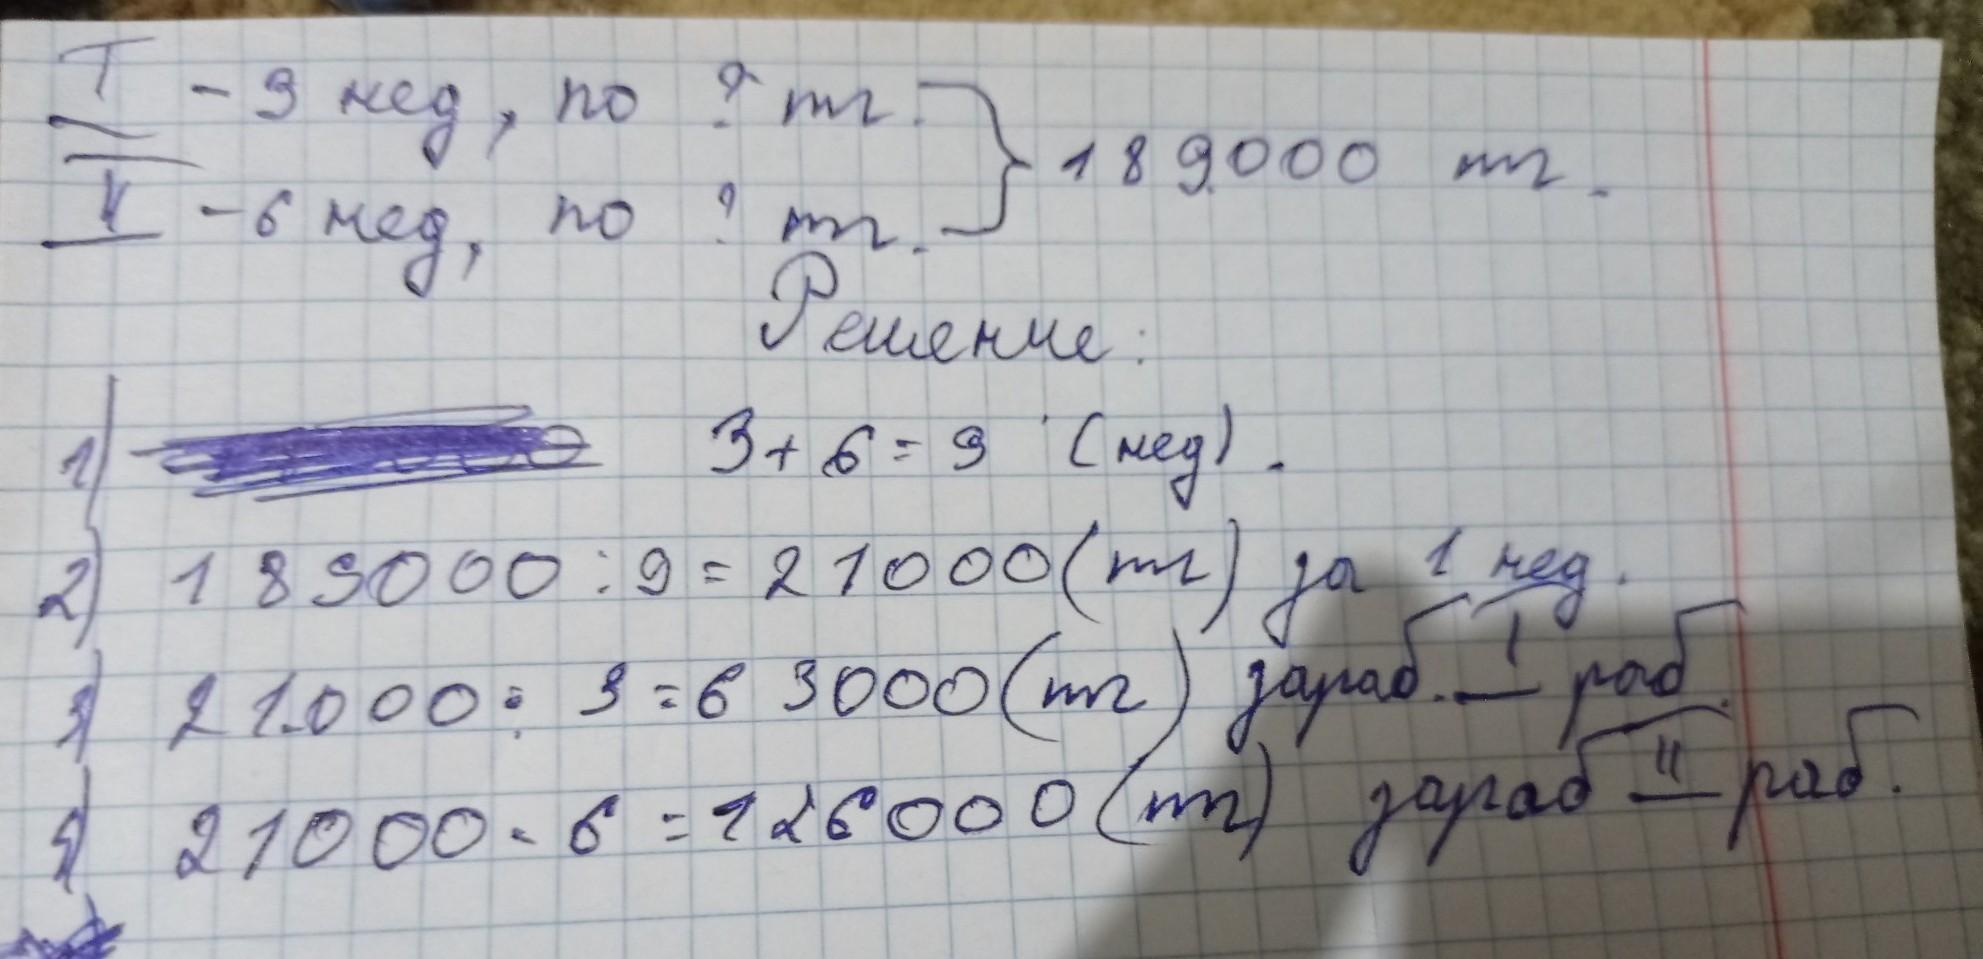 I - 3 нед, по ? тг.
189000 тг.
II - 6 нед, по ? тг.
Решение:
1) 3+6=9 (нед).
2) 189000:9=21000(тг) за 1 нед.
3) 21000: 3=63000(тг) зараб. I раб.
4) 21000·6=126000(тг) зараб II раб.